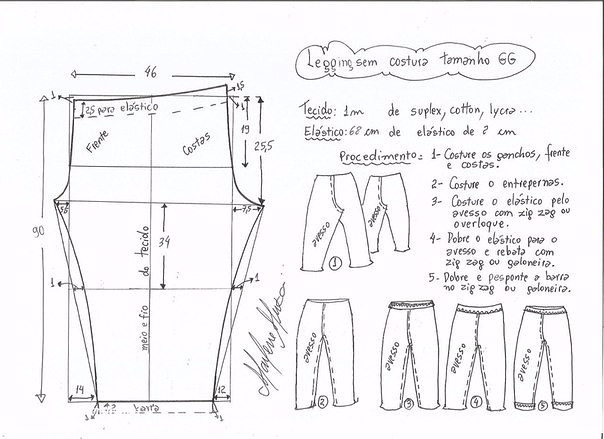 Legging sem costura tamanho GG
46
1,5
1
1
2,5 para elástico
Frente
Costas
19
25,5
Tecido: 1m de suplex, cotton, lycra...
Elástico: 68 cm de elástico de 2 cm
Procedimento: 1- Costure os ganchos, frente
e costas.
2- Costure o entrepernas.
3- Costure o elástico pelo
avesso com zig zag ou
overloque.
4- Dobre o elástico para o
avesso e rebata com
zig zag ou galoneira.
5- Dobre e pesponte a barra
no zig zag ou galoneira.
90
7,5
34
meio e fio do tecido
1
1
14
12
barra
1
1
Marlene Mukai
avesso
avesso
1
avesso
2
avesso
3
avesso
4
avesso
5